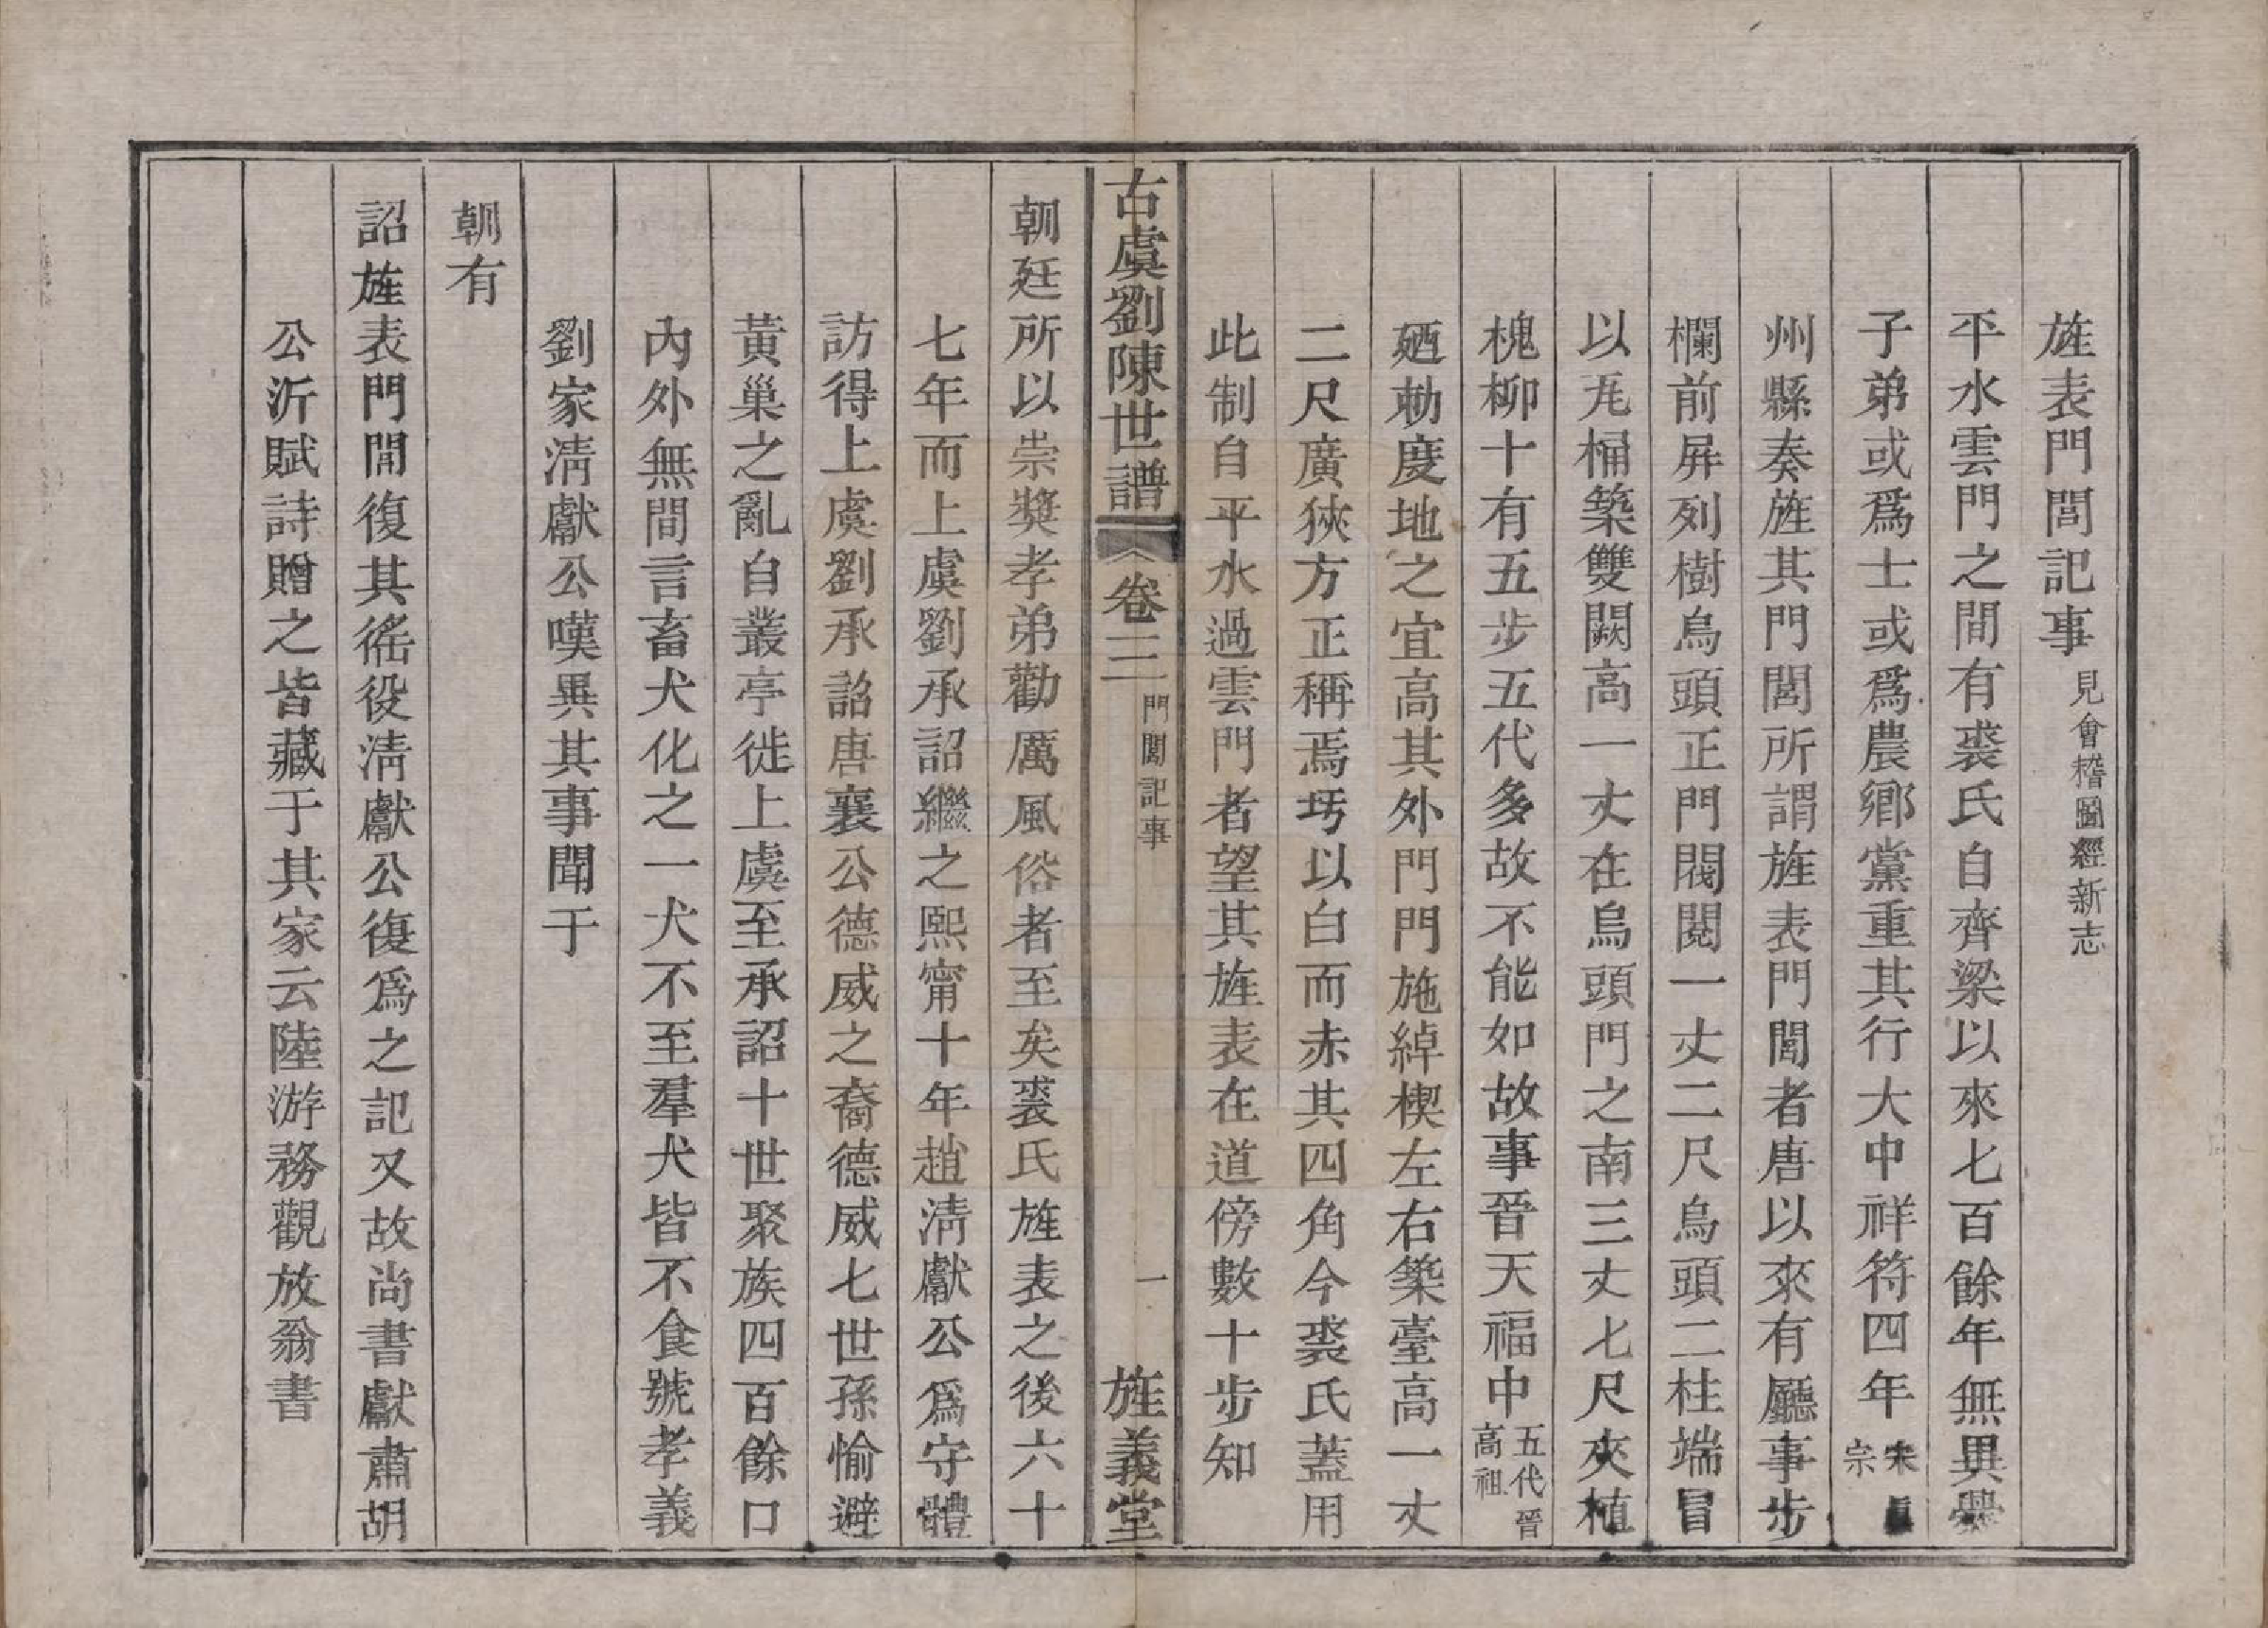 旌表門閭記事 見會稽圖經新志
平水雲門之間有裘氏自齊梁以來七百餘年無異爨
子弟或爲士或爲農鄉黨重其行大中祥符四年 宋真宗
州縣奏旌其門閭所謂旌表門閭者唐以來有廳事步
欄前屏列樹烏頭正門閥閱一丈二尺烏頭二柱端冒
以瓦桶築雙闕高一丈在烏頭門之南三丈七尺夾植
槐柳十有五步五代多故不能如故事晉天福中 五代晉高祖
廼勅度地之宜高其外門門施綽楔左右築臺高一丈
二尺廣狹方正稱焉圬以白而赤其四角今裘氏蓋用
此制自平水過雲門者望其旌表在道傍數十步知
古虞劉陳世譜 卷二 門閭記事 一 旌義堂
朝廷所以崇獎孝弟勸厲風俗者至矣裘氏旌表之後六十
七年而上虞劉承詔繼之熙甯十年趙清獻公爲守體
訪得上虞劉承詔唐襄公德威之裔德威七世孫愉避
黃巢之亂自叢亭徙上虞至承詔十世聚族四百餘口
內外無間言畜犬化之一犬不至羣犬皆不食號孝義
劉家淸獻公嘆異其事聞于
朝有
詔旌表門閭復其徭役淸獻公復爲之記又故尚書獻肅胡
公沂賦詩贈之皆藏于其家云陸游務觀放翁書